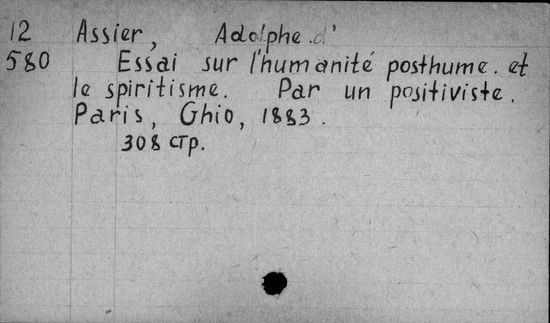 12 Assier, Adolphe d'
580 Essai sur l'humanité posthume. et
le spiritisme. Par un positiviste.
Paris, Ghio, 1883.
308 стр.